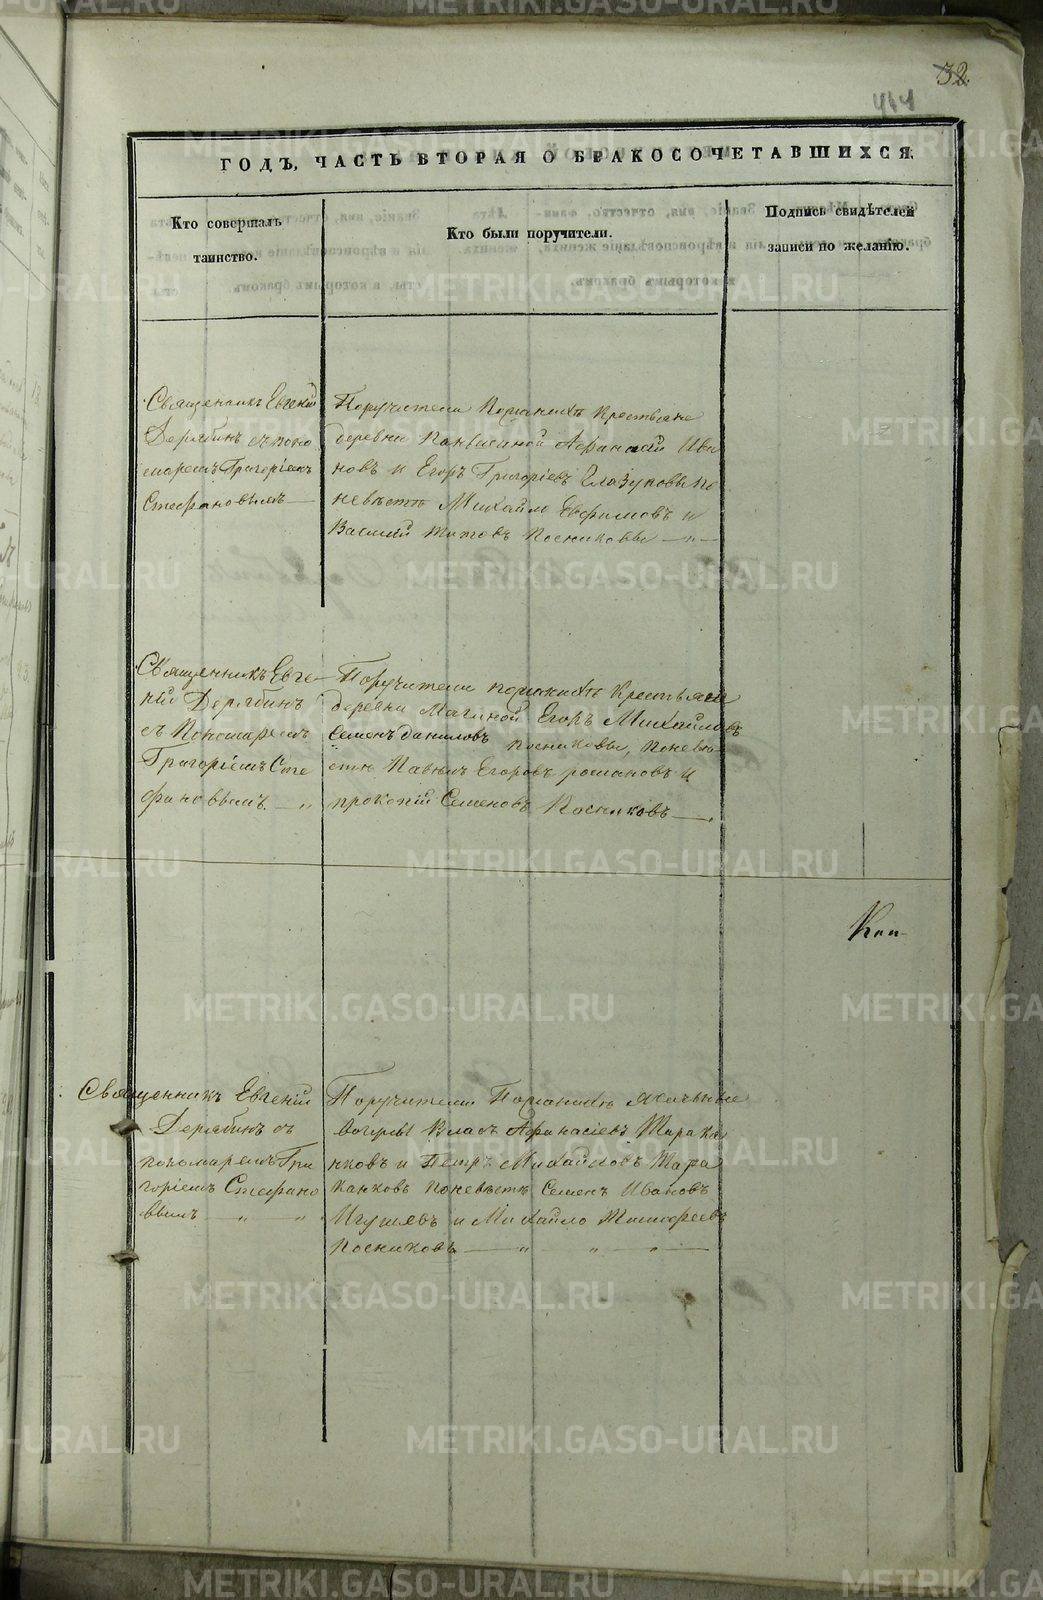 32.
464
ГОДЪ, ЧАСТЬ ВТОРАЯ О БРАКОСОЧЕТАВШИХСЯ.
Кто совершалъ
таинство.
Кто были поручители.
Подпись свидѣтелей
записи по желанію.
Священникъ Евгеній
Дерябинъ съ поно
маремъ Григоріемъ
Стефановымъ
Поручители По женихѣ Крестьяне
деревни Паньшиной Афанасій Ива
новъ и Егоръ Григоріевъ Глазуновы по
невѣстѣ Михайло Евфимовъ и
Василій Титовъ Посниковы
Священникъ Евге
ній Дерябинъ
съ Пономаремъ
Григоріемъ Сте
фановымъ.
Поручители по женихѣ Крестьяне
деревни Егоръ Михайловъ
Семенъ Даниловъ Посниковы, по невѣ
стѣ Павелъ Егоровъ романовъ и
прокопій Семеновъ Посниковъ
Священникъ Евгеній
Дерябинъ съ
пономаремъ Гри
горіемъ Стефано
вымъ
Поручители По женихѣ Ясачные
Вогулы Власъ Афанасіевъ Тарака
нковъ и Петръ Михайловъ Тара
канковъ по невѣстѣ Семенъ Ивановъ
и Михайло Тимофеевъ
Посниковъ
METRIKI.GASO-URAL.RU